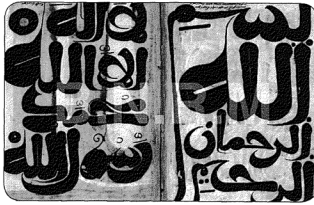 بسم
الله
الرحمان
الرحيم
لا اله
الا الله
محمد
رسول الله